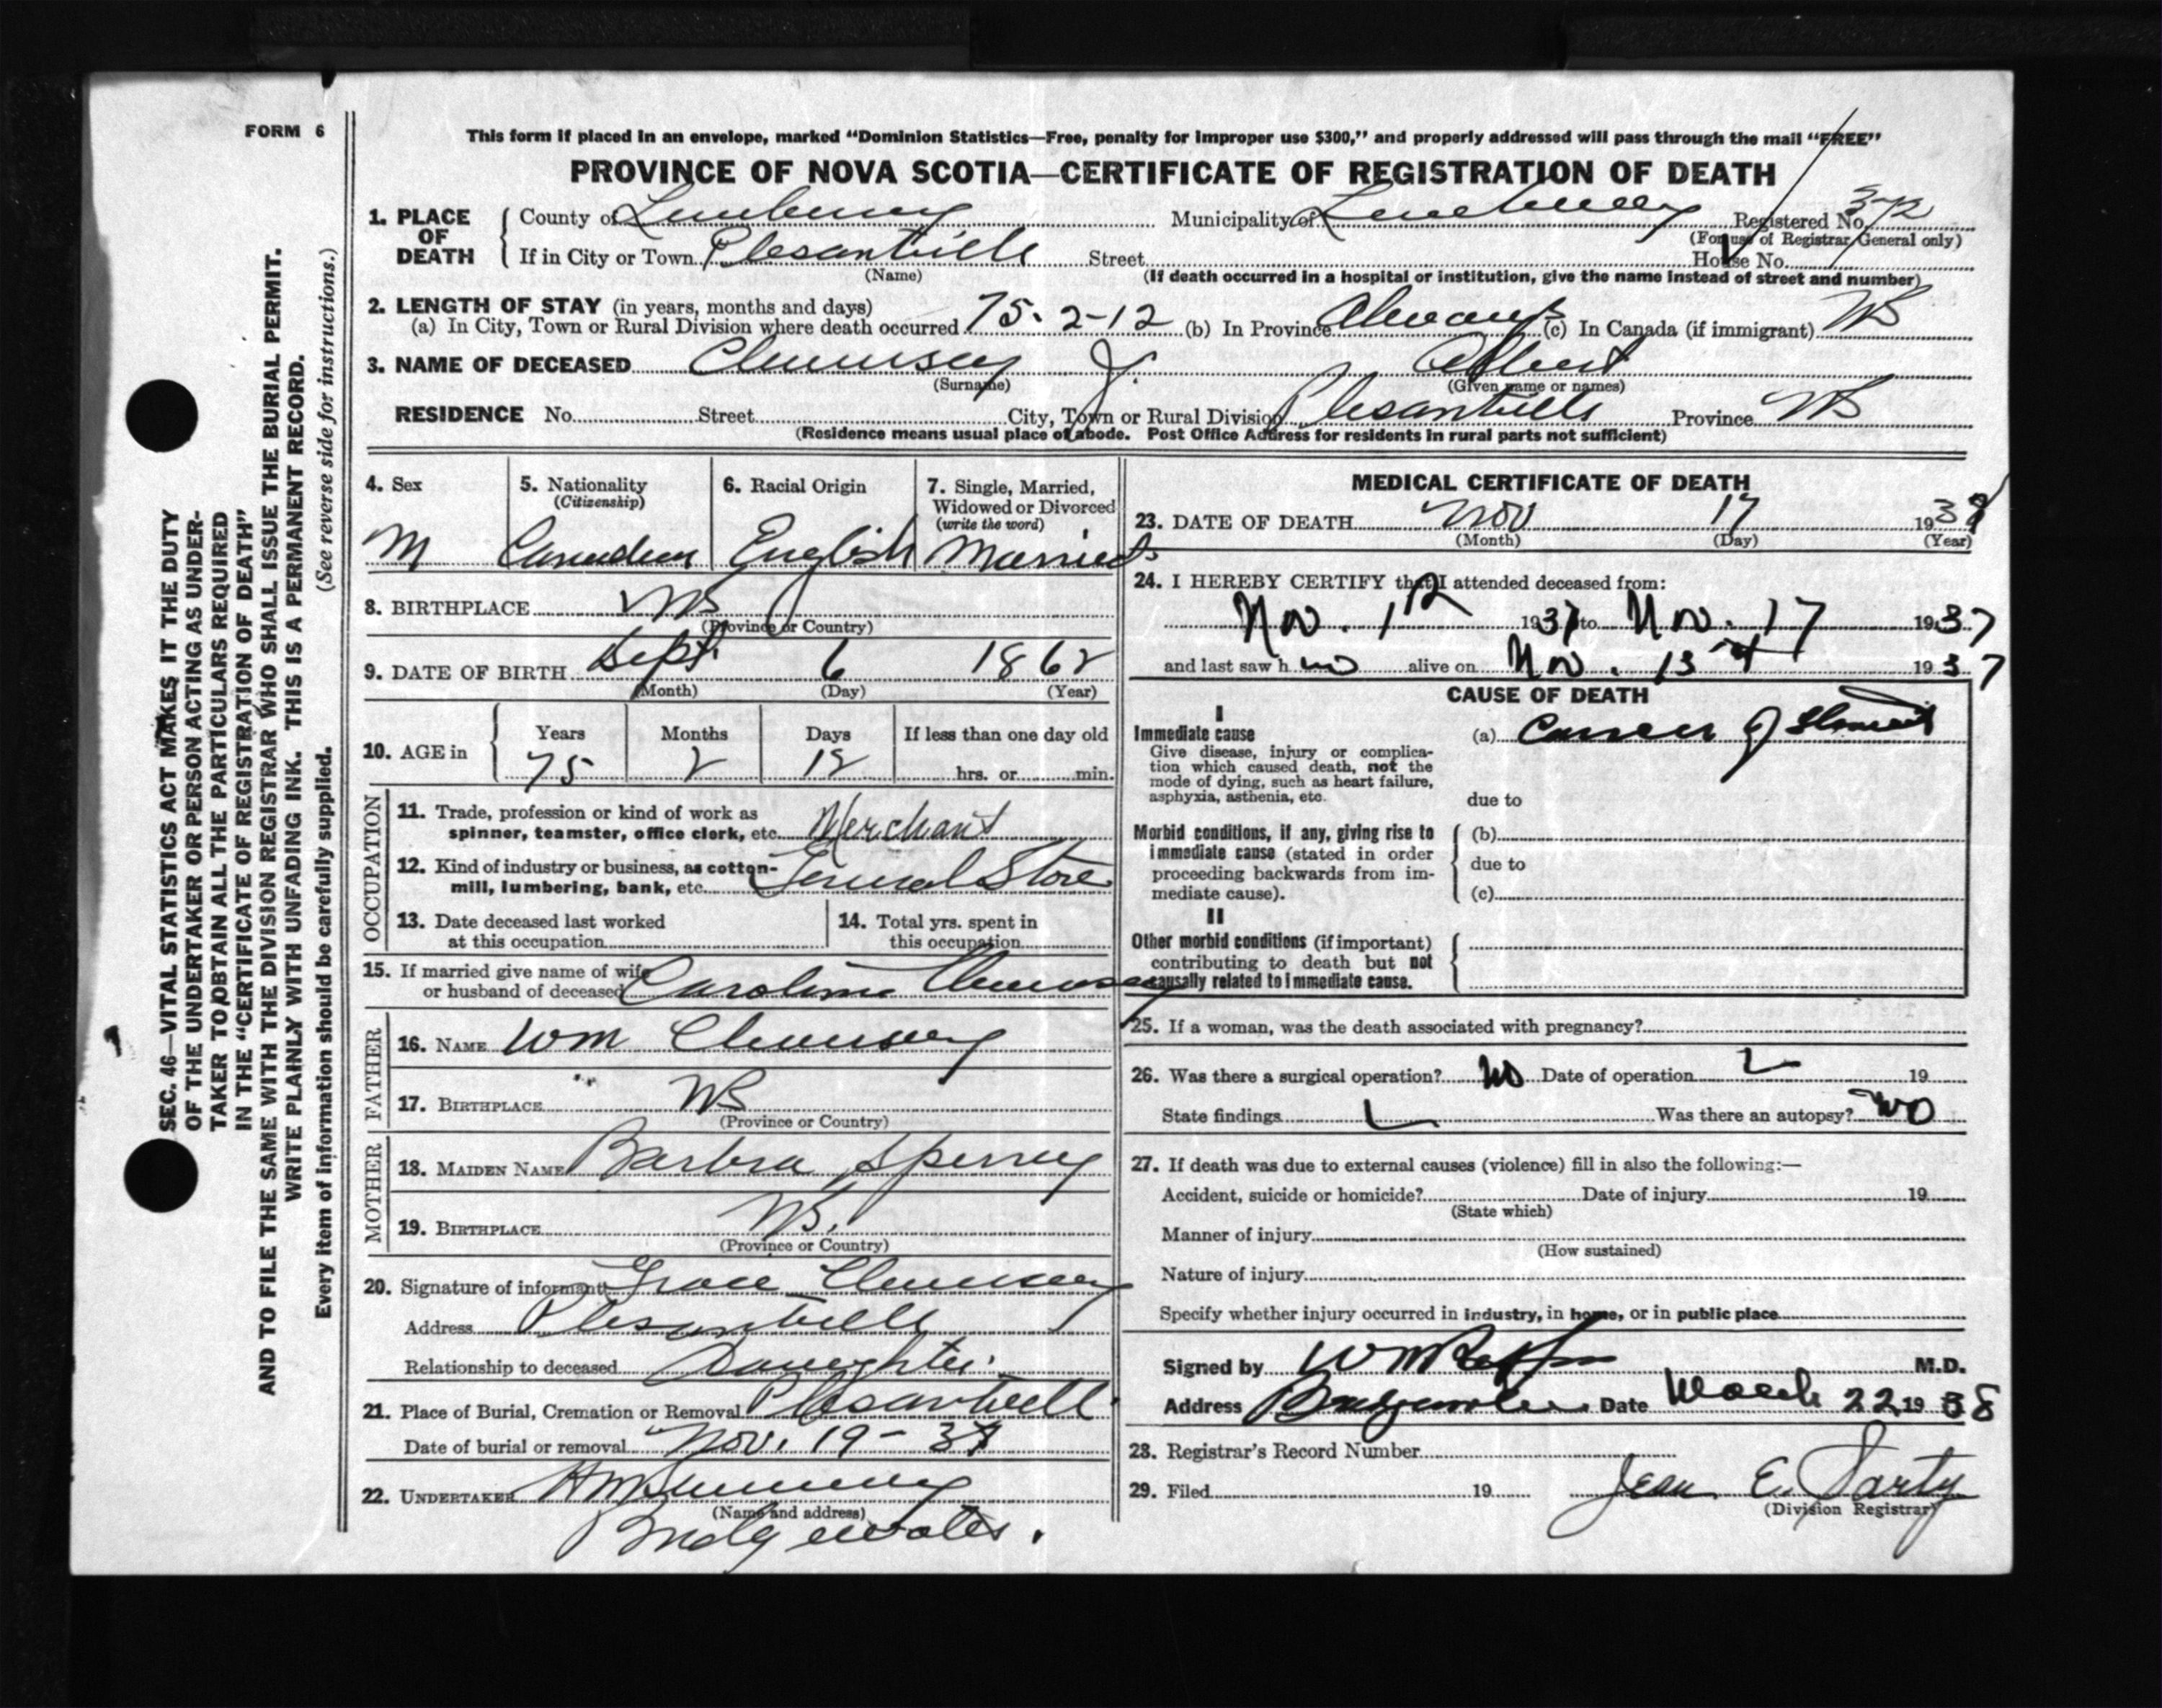 FORM 6
This form if placed in an envelope, marked “Dominion Statistics—Free, penalty for improper use $300,” and properly addressed will pass through the mail “FREE”
PROVINCE OF NOVA SCOTIA—CERTIFICATE OF REGISTRATION OF DEATH
1. PLACE OF DEATH County of Lunenburg Municipality of Lunenburg Registered No. 372
(For use of Registrar General only)
If in City or Town Plesantville Street House No.
(Name) (If death occurred in a hospital or institution, give the name instead of street and number)
2. LENGTH OF STAY (in years, months and days)
(a) In City, Town or Rural Division where death occurred 75-2-12 (b) In Province Always (c) In Canada (if immigrant) NS
3. NAME OF DECEASED J. Albert
(Surname) (Given name or names)
RESIDENCE No. Street City, Town or Rural Division Plesantville Province NS
(Residence means usual place of abode. Post Office Address for residents in rural parts not sufficient)
4. Sex M
5. Nationality (Citizenship) Canadian
6. Racial Origin English
7. Single, Married, Widowed or Divorced (write the word) Married
8. BIRTHPLACE NS
(Province or Country)
9. DATE OF BIRTH Sept. 6 1862
(Month) (Day) (Year)
10. AGE in Years Months Days If less than one day old
75 2 12 hrs. or min.
OCCUPATION
11. Trade, profession or kind of work as
spinner, teamster, office clerk, etc. Merchant
12. Kind of industry or business, as cotton-
mill, lumbering, bank, etc. General Store
13. Date deceased last worked
at this occupation
14. Total yrs. spent in
this occupation
15. If married give name of wife
or husband of deceased Caroline
FATHER
16. NAME Wm
17. BIRTHPLACE NS
(Province or Country)
MOTHER
18. MAIDEN NAME Barbra Sperrey
19. BIRTHPLACE NS.
(Province or Country)
20. Signature of informant Grace
Address Plesantville
Relationship to deceased Daughter
21. Place of Burial, Cremation or Removal Plesantville
Date of burial or removal Nov. 19-37
22. UNDERTAKER
(Name and address)
Bridgewater.
MEDICAL CERTIFICATE OF DEATH
23. DATE OF DEATH Nov 17 193
(Month) (Day) (Year)
24. I HEREBY CERTIFY that I attended deceased from:
Nov. 1 1937 to Nov. 17 1937
and last saw h alive on Nov. 1937
CAUSE OF DEATH
I
Immediate cause
Give disease, injury or complica-
tion which caused death, not the
mode of dying, such as heart failure,
asphyxia, asthenia, etc.
(a) Cancer of
due to
Morbid conditions, if any, giving rise to
immediate cause (stated in order
proceeding backwards from im-
mediate cause).
(b)
due to
(c)
II
Other morbid conditions (if important)
contributing to death but not
causally related to immediate cause.
25. If a woman, was the death associated with pregnancy?
26. Was there a surgical operation? No Date of operation 19
State findings Was there an autopsy? No
27. If death was due to external causes (violence) fill in also the following:—
Accident, suicide or homicide? Date of injury 19
(State which)
Manner of injury
(How sustained)
Nature of injury
Specify whether injury occurred in industry, in home, or in public place
Signed by M.D.
Address Bridgewater Date March 22 1938
28. Registrar's Record Number
29. Filed 19 Jean E. Sarty
(Division Registrar)
SEC. 46—VITAL STATISTICS ACT MAKES IT THE DUTY
OF THE UNDERTAKER OR PERSON ACTING AS UNDER-
TAKER TO OBTAIN ALL THE PARTICULARS REQUIRED
IN THE “CERTIFICATE OF REGISTRATION OF DEATH”
AND TO FILE THE SAME WITH THE DIVISION REGISTRAR WHO SHALL ISSUE THE BURIAL PERMIT.
WRITE PLAINLY WITH UNFADING INK. THIS IS A PERMANENT RECORD.
Every item of information should be carefully supplied. (See reverse side for instructions.)